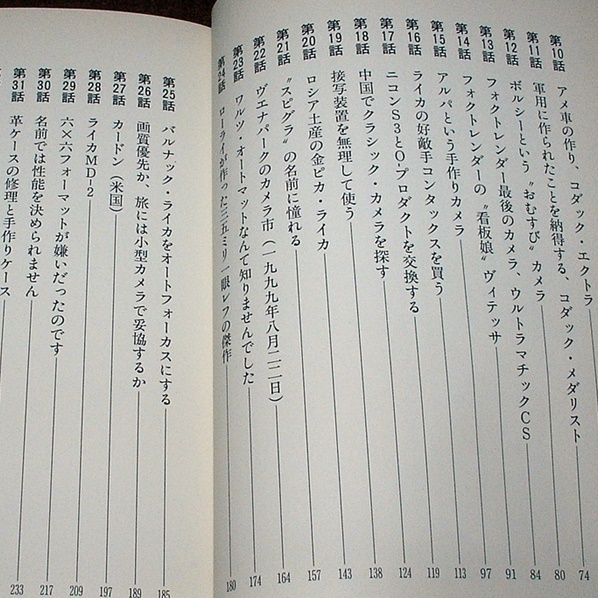 第10話 アメ車の作り、コダック・エクトラ 74
第11話 軍用に作られたことを納得する、コダック・メダリスト 80
第12話 ボルシーという〝おむすび〟カメラ 84
第13話 フォクトレンダー最後のカメラ、ウルトラマチックCS 91
第14話 フォクトレンダーの〝看板娘〟ヴィテッサ 97
第15話 アルパという手作りカメラ 113
第16話 ライカの好敵手コンタックスを買う 119
第17話 ニコンS3とO・プロダクトを交換する 124
第18話 中国でクラシック・カメラを探す 138
第19話 接写装置を無理して使う 143
第20話 ロシア土産の金ピカ・ライカ 157
第21話 〝スピグラ〟の名前に憧れる 164
第22話 ヴエナパークのカメラ市（一九九九年八月二二日） 174
第23話 ワルツ・オートマットなんて知りませんでした 180
第24話 ローライが作った三五ミリ一眼レフの傑作
第25話 バルナック・ライカをオートフォーカスにする 185
第26話 画質優先か、旅には小型カメラで妥協するか 189
第27話 カードン（米国） 197
第28話 ライカMD-2 209
第29話 六×六フォーマットが嫌いだったのです 217
第30話 名前では性能を決められません 233
第31話 革ケースの修理と手作りケース